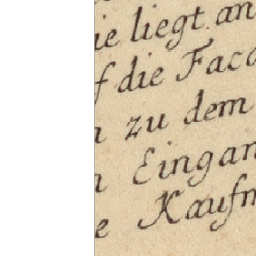 ie liegt an
f die Faca
n zu dem
n Eingan
e Kaufm